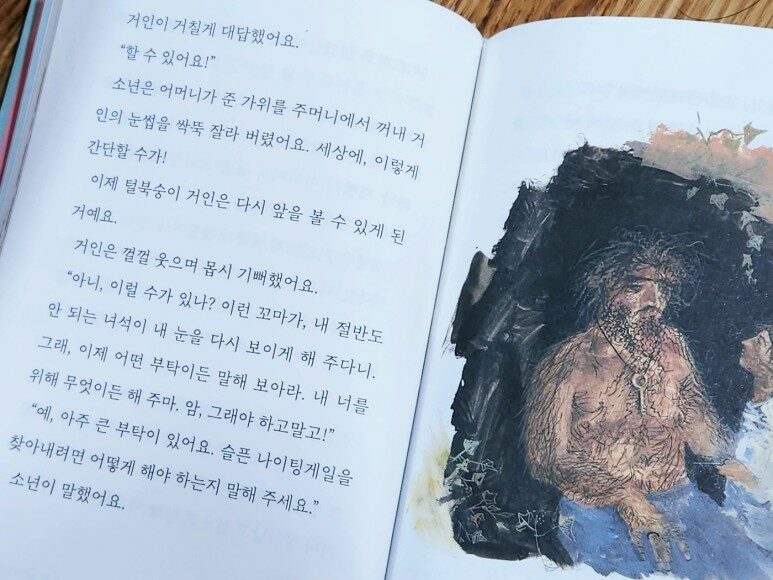 거인이 거칠게 대답했어요.
“할 수 있어요!”
소년은 어머니가 준 가위를 주머니에서 꺼내 거
인의 눈썹을 싹뚝 잘라 버렸어요. 세상에, 이렇게
간단할 수가!
이제 털북숭이 거인은 다시 앞을 볼 수 있게 된
거예요.
거인은 껄껄 웃으며 몹시 기뻐했어요.
“아니, 이럴 수가 있나? 이런 꼬마가, 내 절반도
안 되는 녀석이 내 눈을 다시 보이게 해 주다니.
그래, 이제 어떤 부탁이든 말해 보아라. 내 너를
위해 무엇이든 해 주마. 암, 그래야 하고말고!”
“예, 아주 큰 부탁이 있어요. 슬픈 나이팅게일을
찾아내려면 어떻게 해야 하는지 말해 주세요.”
소년이 말했어요.